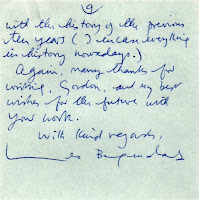 9
with the history of the previous
ten years ( ) in case everything
in history nowadays.)
Again, many thanks for
writing, Gordon, and my best
wishes for the future with
your work.
With kind regards,